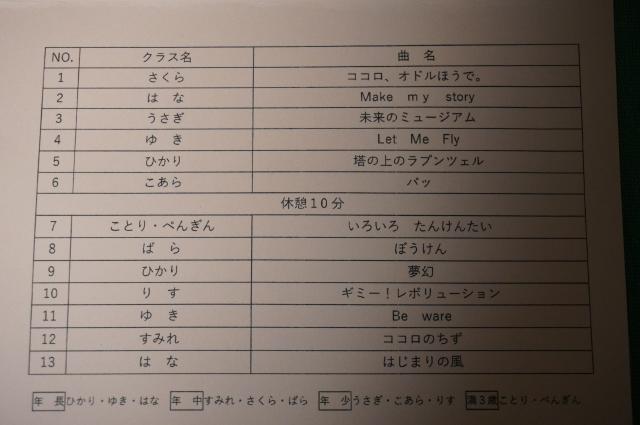 NO. クラス名 曲 名
1 さくら ココロ、オドルほうで。
2 は な Make my story
3 うさぎ 未来のミュージアム
4 ゆ き Let Me Fly
5 ひかり 塔の上のラプンツェル
6 こあら パッ
休憩10分
7 ことり・ぺんぎん いろいろ たんけんたい
8 ば ら ぼうけん
9 ひかり 夢幻
10 り す ギミー！レボリューション
11 ゆ き Be ware
12 すみれ ココロのちず
13 は な はじまりの風
年 長 ひかり・ゆき・はな 年 中 すみれ・さくら・ばら 年 少 うさぎ・こあら・りす 満3歳 ことり・ぺんぎん